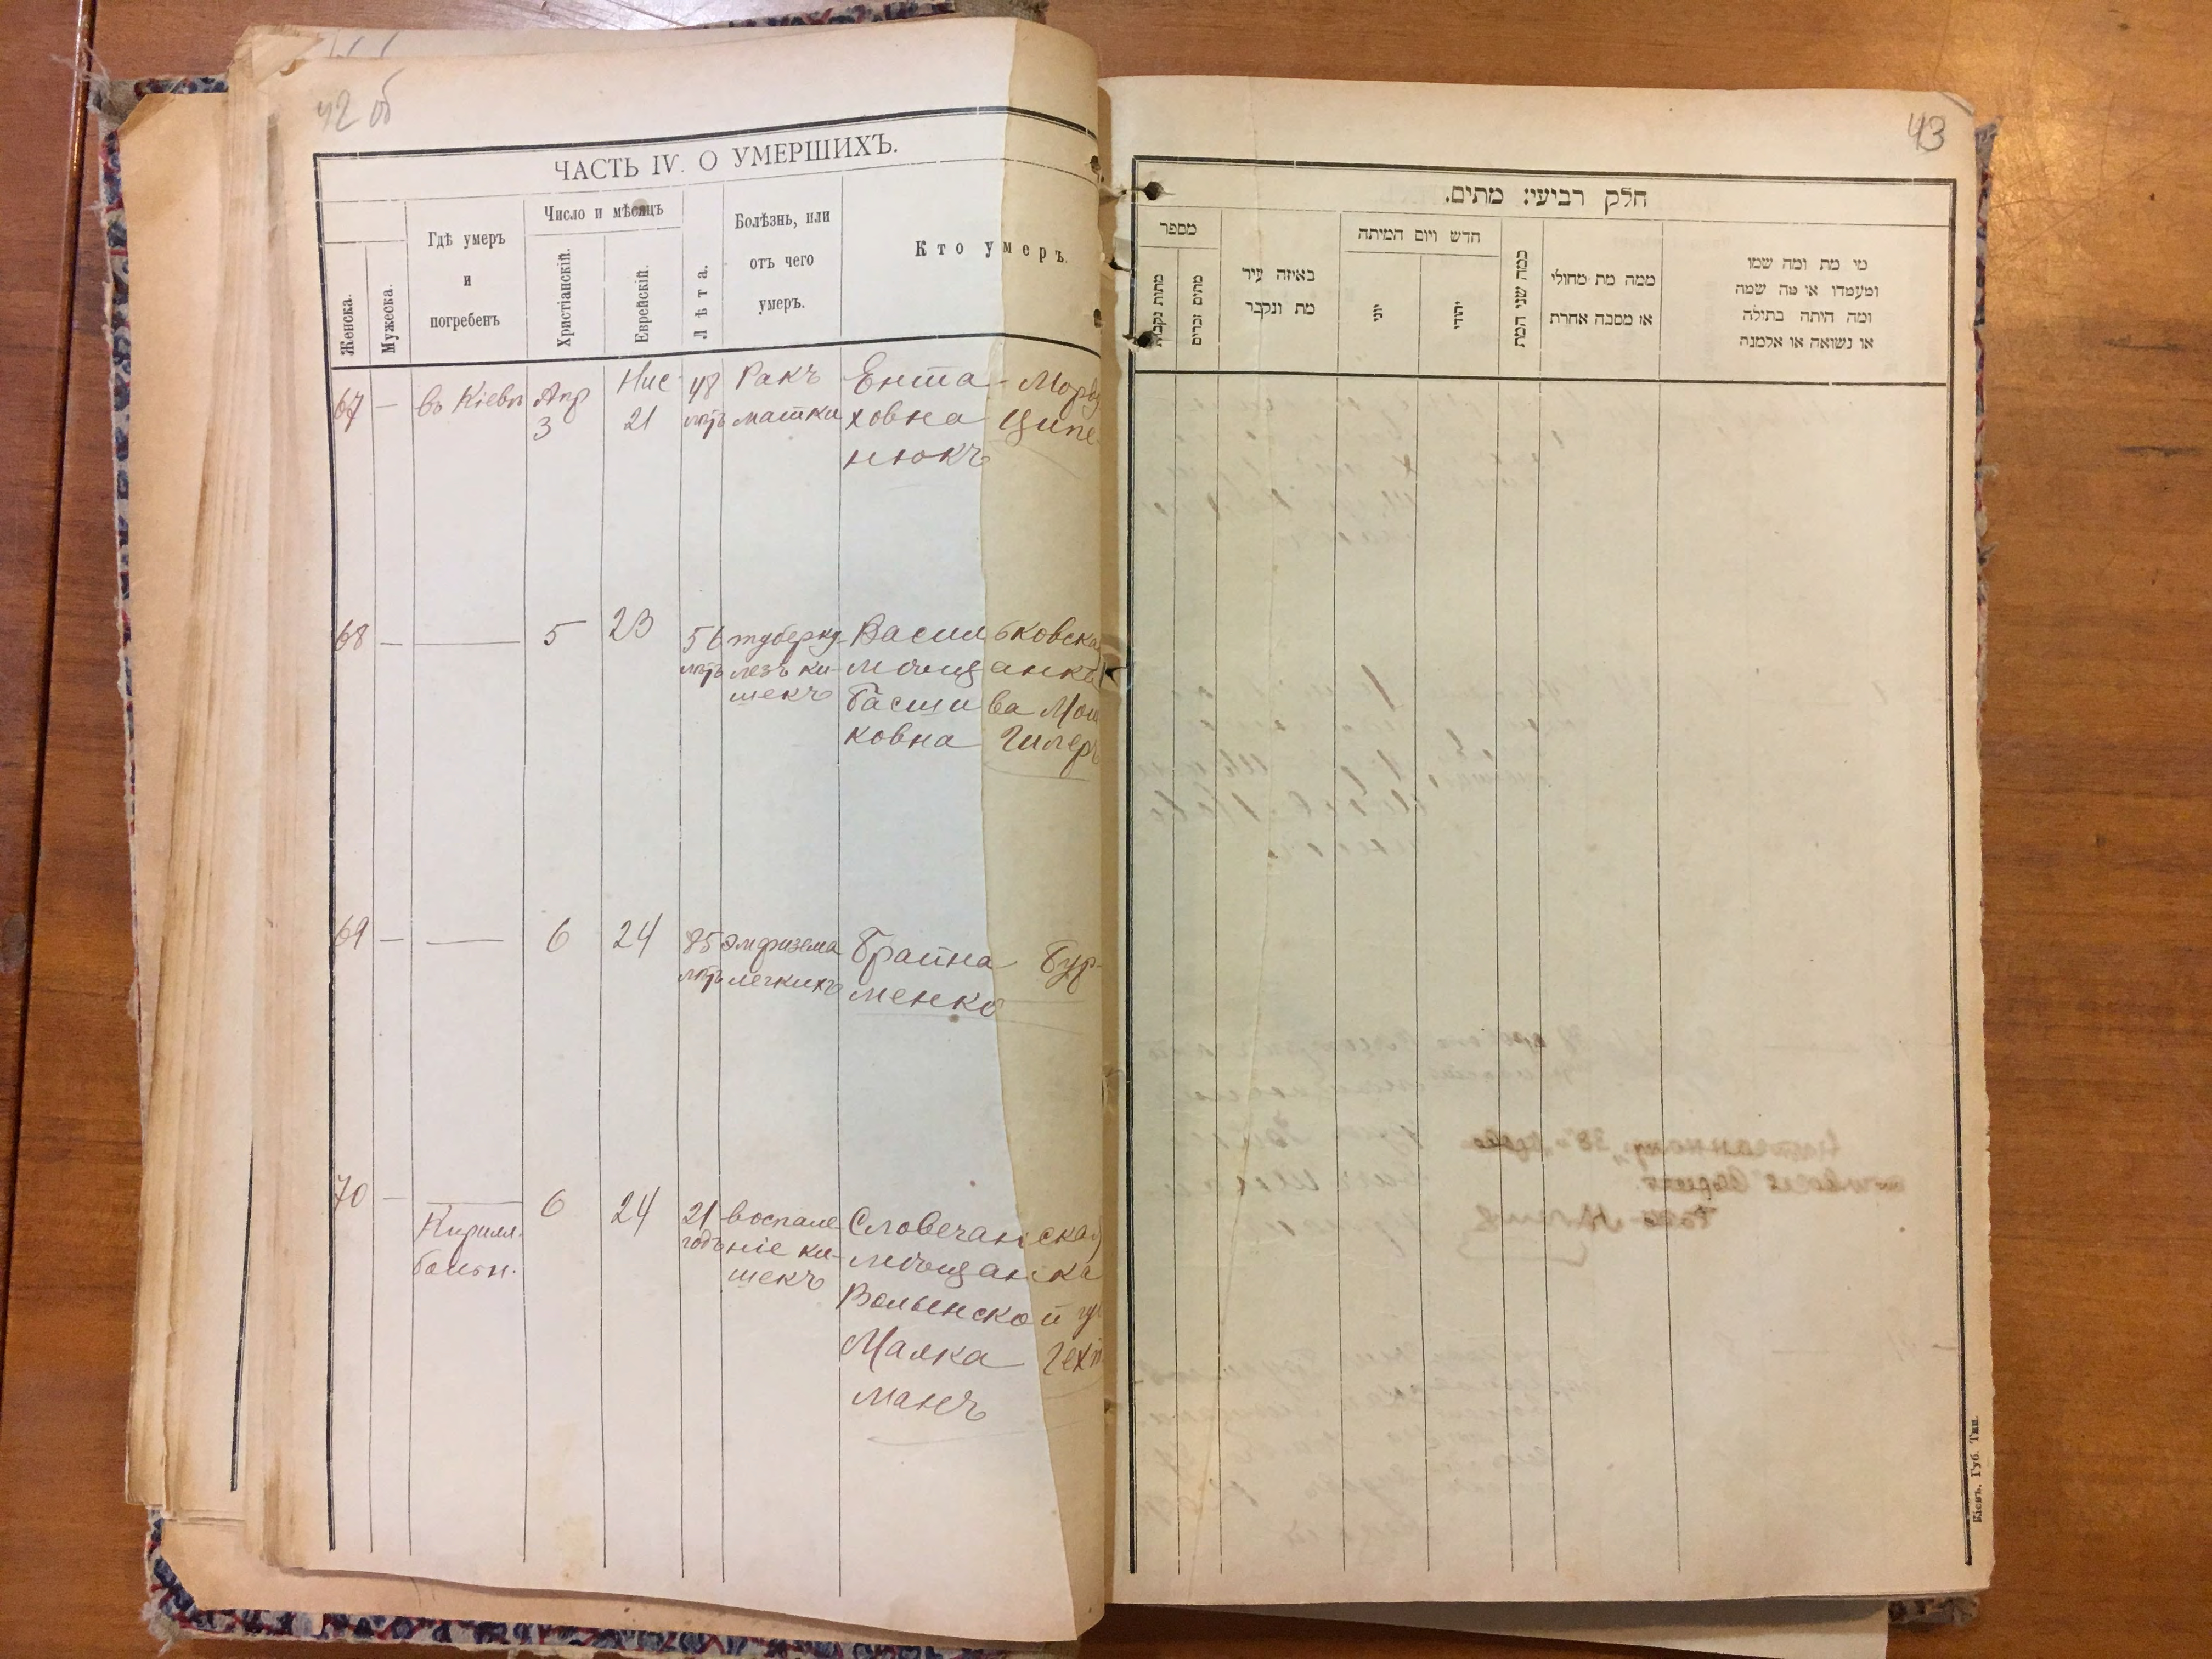 42 об
ЧАСТЬ IV. О УМЕРШИХЪ.
Женска.
Мужеска.
Гдѣ умеръ
и
погребенъ
Число и мѣсяцъ
Христіанскій.
Еврейскій.
Лѣта.
Болѣзнь, или
отъ чего
умеръ.
Кто умеръ.
67 — въ Кіевѣ Апр 3 Нис 21 48 лѣтъ Ракъ матки
Ента Морду
ховна Ципе-
нюкъ
68 — — 5 23 56 лѣтъ туберку-
лезъ ки-
шекъ
Васильковская
мѣщанка
Басшива Мош
ковна Гилеръ
69 — — 6 24 85 лѣтъ эмфизема
легкихъ
Брайна Бур-
менко
70 — — 6 24 21 годъ воспале
ніе ки-
шекъ
Кирилл.
больн.
Словечанская
мѣщанка
Волынской гу
Малка Гехт
манъ
43
חלק רביעי: מתים.
מספר
מתות נקבות
מתים זכרים
באיזה עיר
מת ונקבר
חדש ויום המיתה
יוני
יהודי
כמה שני המת
ממה מת מחולי
או מסבה אחרת
מי מת ומה שמו
ומעמדו או מה שמה
ומה היתה בתולה
או נשואה או אלמנה
Кіевъ. Губ. Тип.